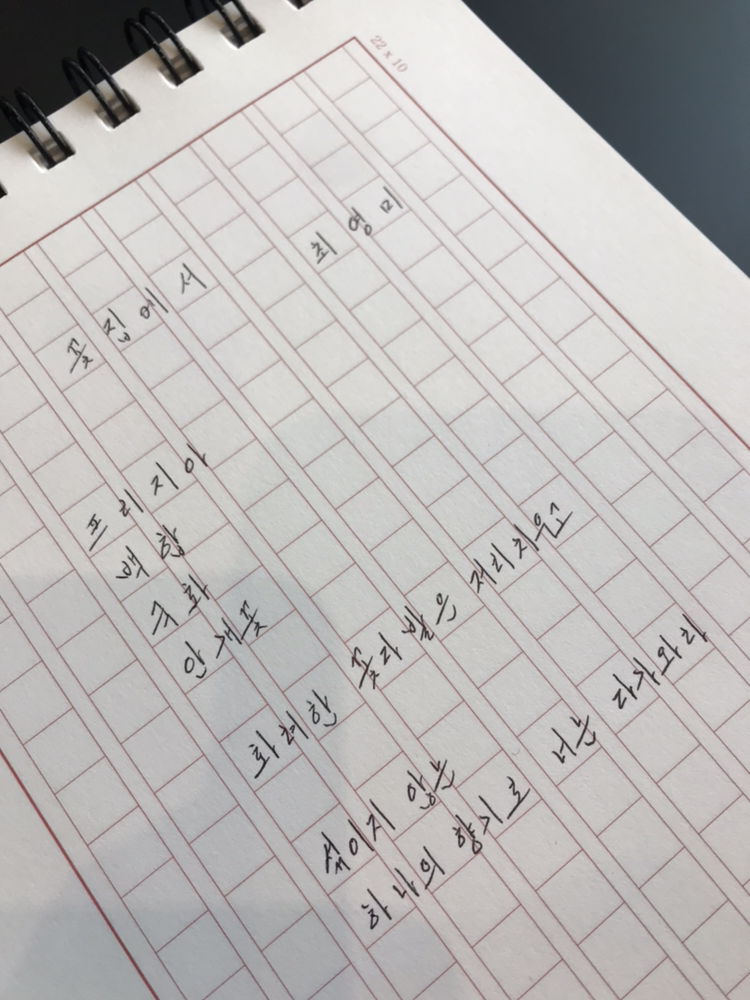 22 x 10
꽃집에서
최영미
프리지아
백합
국화
안개꽃
화려한 꽃다발은 저리 치우고
섞이지 않는
하나의 향기로 너는 다가와라